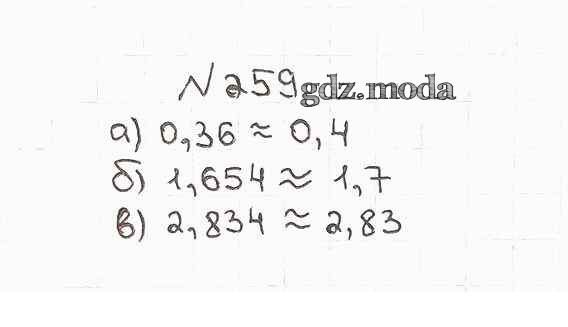 N 259 gdz.moda
а) 0,36 ≈ 0,4
б) 1,654 ≈ 1,7
в) 2,834 ≈ 2,83